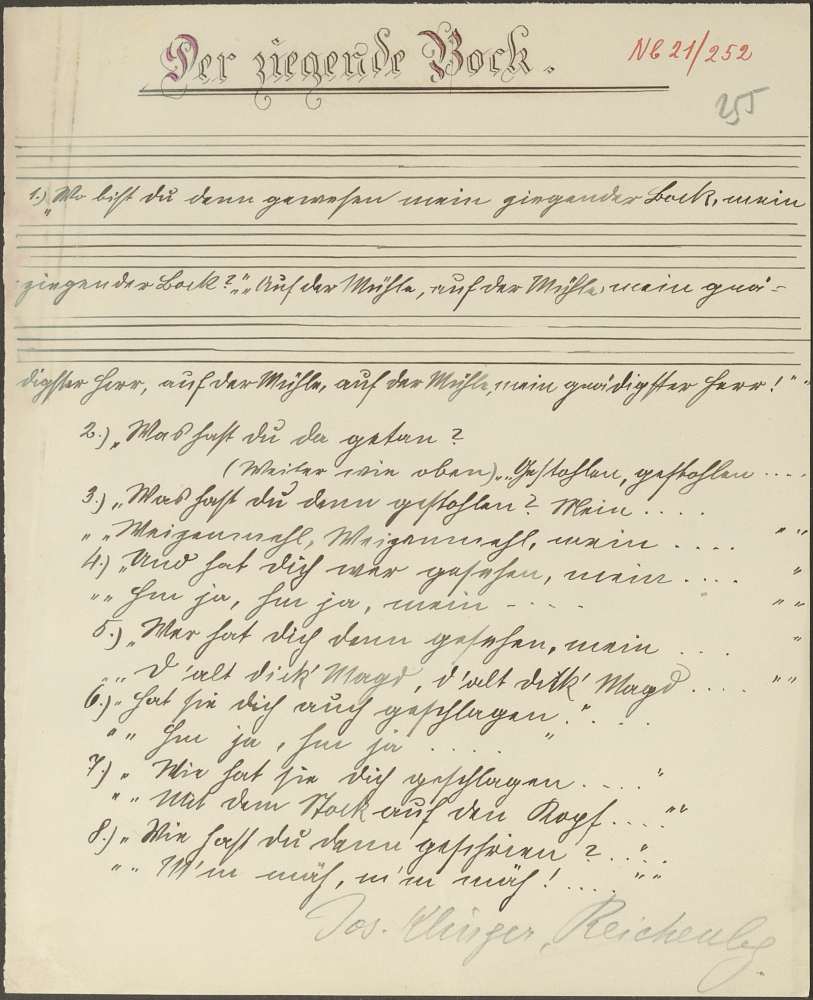 Der ziegende Bock.
Nb 21/252
255
1.) „Wo bist du denn gewesen mein ziegender Bock, mein
ziegender Bock?" „„Auf der Mühle, auf der Mühle, mein gnä-
digster Herr, auf der Mühle, auf der Mühle, mein gnädigster Herr!""
2.) „Was hast du da getan?
(Weiter wie oben) „„Gestohlen, gestohlen ....
3.) „Was hast du denn gestohlen? Mein ....
„„Weizenmehl, Weizenmehl, mein .... ""
4.) „Und hat dich wer gesehen, mein .... "
„„Hm ja, hm ja, mein - . . . ""
5.) „Wer hat dich denn gesehen, mein .... "
„„D'alt dick' Magd, d'alt dick' Magd .... ""
6.) „Hat sie dich auch geschlagen. "...
„„Hm ja, hm ja .... "
7.) „Wie hat sie dich geschlagen .... "
„„Mit dem Stock auf den Kopf ....""
8.) „Wie hast du denn geschrien? .."..
„„M'm mäh, m'm mäh! ....""
Jos. Klinger, Reichenbg.